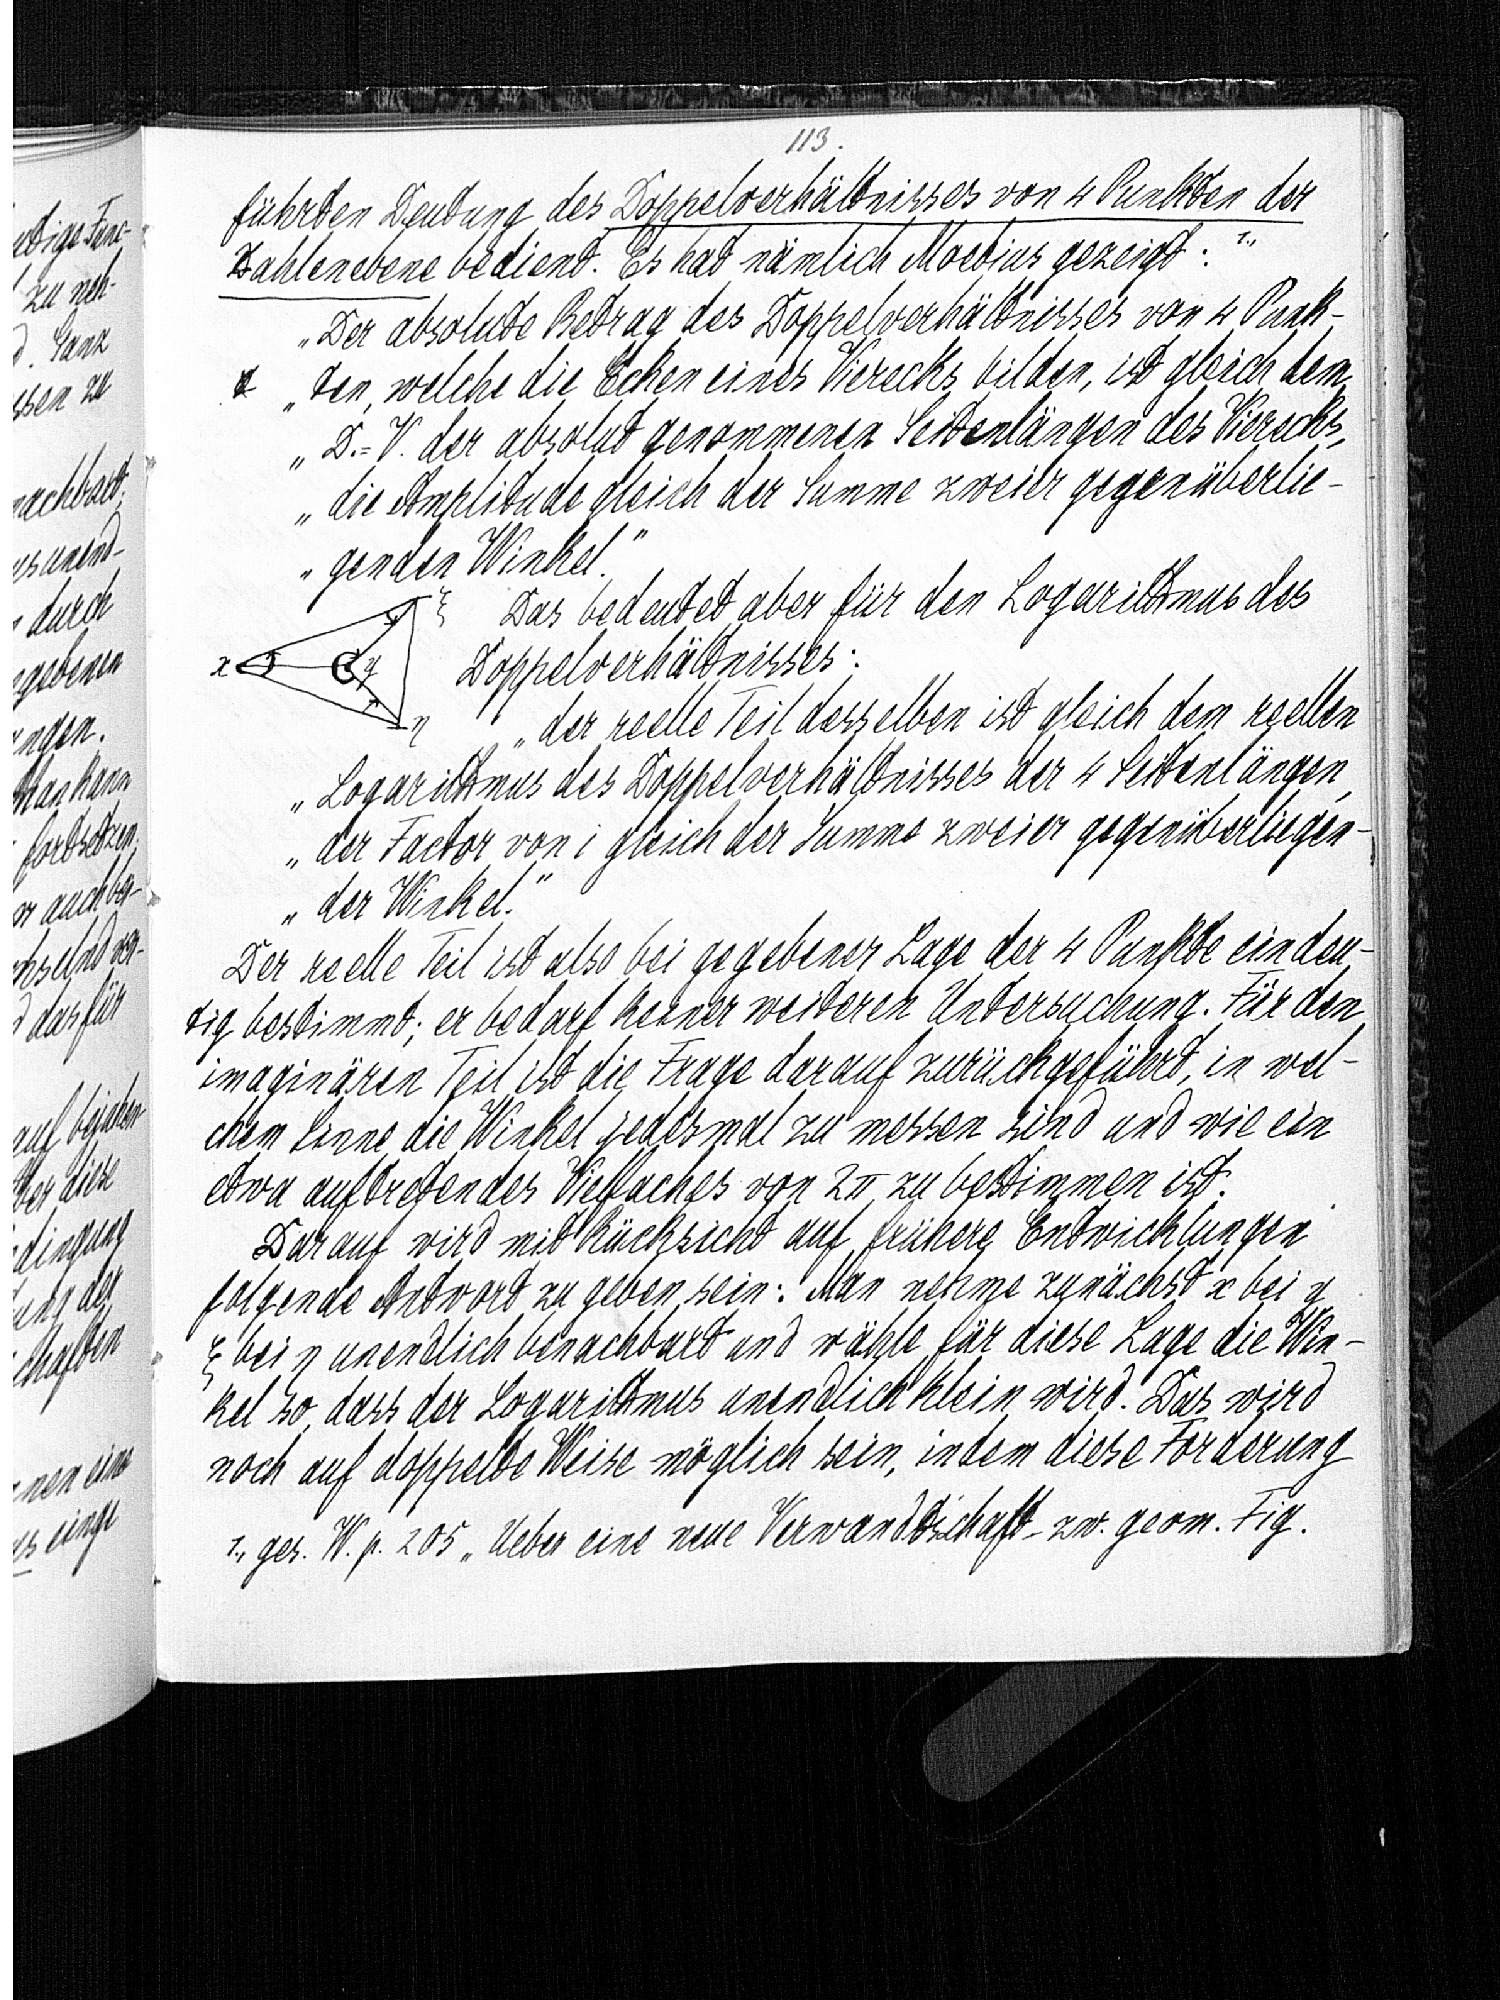 113.
führten Deutung des Doppelverhältnisses von 4 Punkten der
Zahlenebene bedient. Es hat nämlich Moebius gezeigt: 1.,
„Der absolute Betrag des Doppelverhältnisses von 4 Punk-
„ten, welche die Ecken eines Vierecks bilden, ist gleich dem
„D.=V. der absolut genommenen Seitenlängen des Vierecks,
„die Amplitude gleich der Summe zweier gegenüberlie-
„genden Winkel."
ξ Das bedeutet aber für den Logarithmus des
x y Doppelverhältnisses:
η „der reelle Teil desselben ist gleich dem reellen
„Logarithmus des Doppelverhältnisses der 4 Seitenlängen,
„der Factor von i gleich der Summe zweier gegenüberliegen-
„der Winkel."
Der reelle Teil ist also bei gegebener Lage der 4 Punkte eindeu-
tig bestimmt; er bedarf keiner weiteren Untersuchung. Für den
imaginären Teil ist die Frage darauf zurückgeführt, in wel-
chem Sinne die Winkel jedesmal zu messen sind und wie ein
etwa auftretendes Vielfaches von 2π zu bestimmen ist.
Darauf wird mit Rücksicht auf frühere Entwicklungen
folgende Antwort zu geben sein: Man nehme zunächst x bei y
ξ bei η unendlich benachbart und wähle für diese Lage die Win-
kel so, dass der Logarithmus unendlich klein wird. Das wird
noch auf doppelte Weise möglich sein, indem diese Forderung
1., ges. W. p. 205 „Ueber eine neue Verwandtschaft zw. geom. Fig.